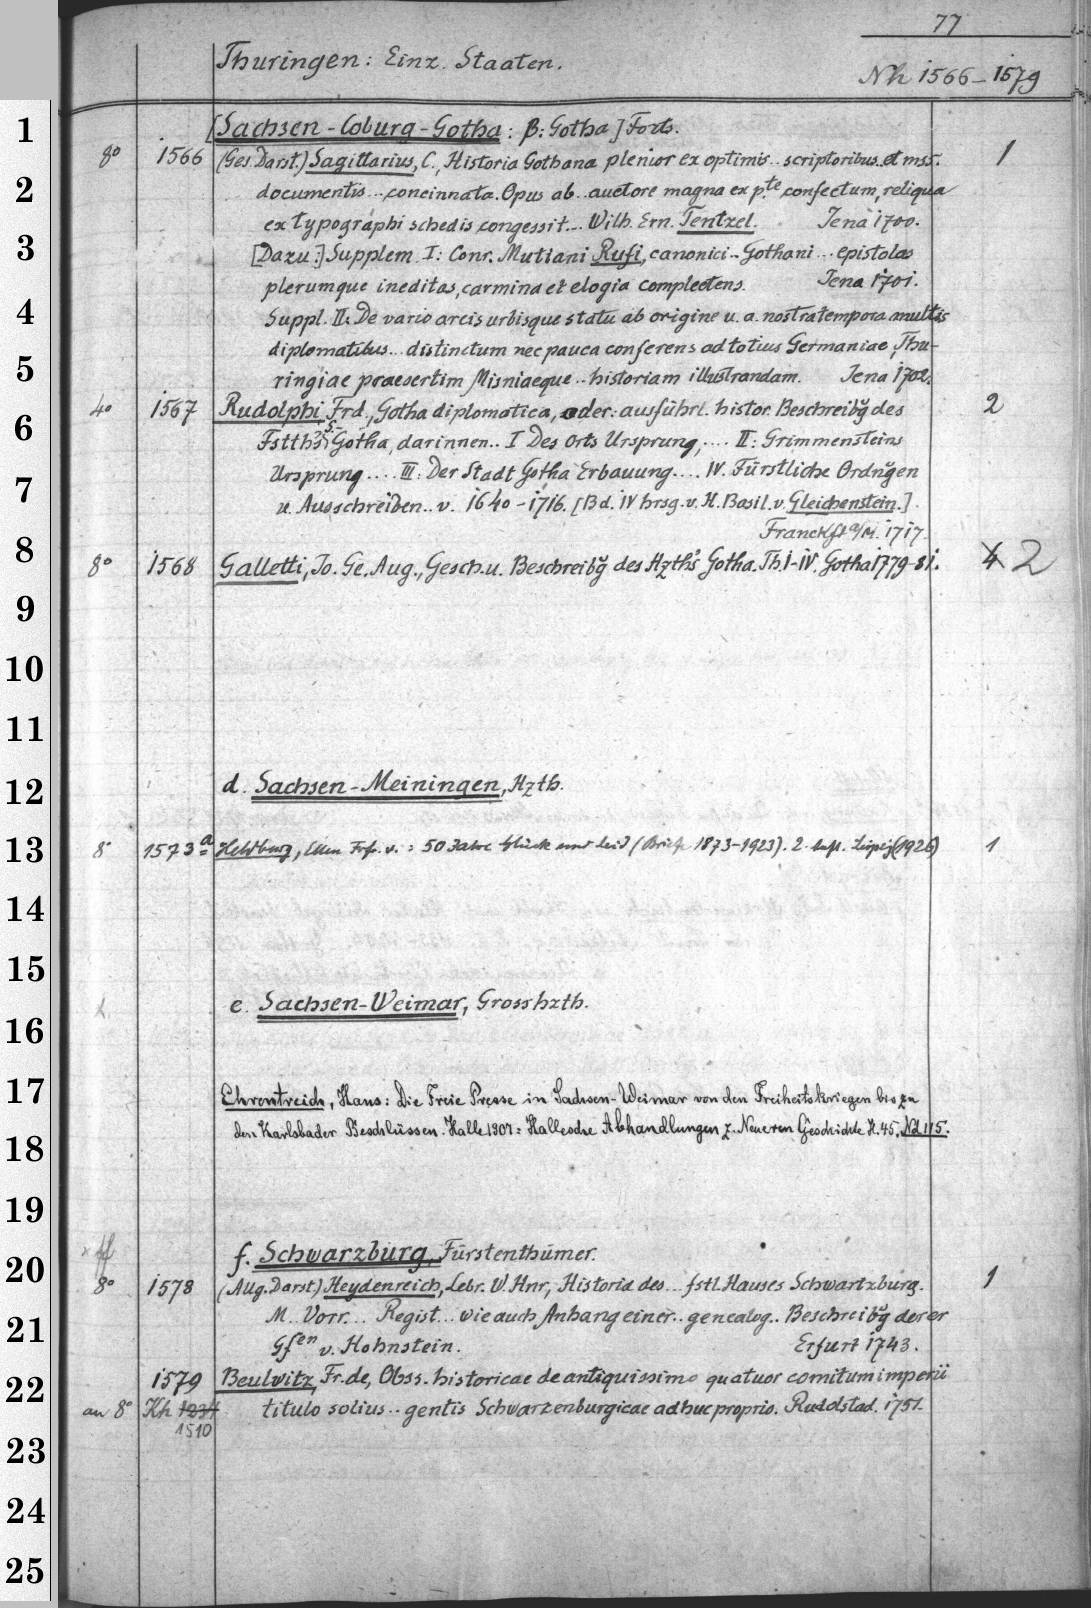 77
Thuringen: Einz. Staaten.
Nh 1566-1579
1
[Sachsen-Coburg-Gotha: β: Gotha] Forts.
8° 1566 (Ges. Darst.) Sagittarius, C., Historia Gothana plenior ex optimis .. scriptoribus et mss. 1
2 documentis .. concinnata. Opus ab .. auctore magna ex p.te confectum, reliqua
ex typographi schedis congessit... Wilh. Ern. Tentzel. Jena 1700.
3 [Dazu:] Supplem I: Conr. Mutiani Rufi, canonici .. Gothani ... epistolas
plerumque ineditas, carmina et elogia complectens. Jena 1701.
4 Suppl. II: De vario arcis urbisque statu ab origine u. a. nostra tempora multis
diplomatibus .. distinctum nec pauca conferens ad totius Germaniae, Thu-
5 ringiae praesertim Misniaeque .. historiam illustrandam. Jena 1702.
6 4° 1567 Rudolphi Frd., Gotha diplomatica, oder: ausführl. histor. Beschreibg des 2
Fstths S.-Gotha, darinnen .. I Des Orts Ursprung, .... II: Grimmensteins
7 Ursprung .... III: Der Stadt Gotha Erbauung .... IV. Fürstliche Ordngen
u. Ausschreiben .. v. 1640-1716. [Bd. IV hrsg. v. H. Basil. v. Gleichenstein.]
8 Franckft a/M. 1717.
8° 1568 Galletti, Jo. Ge. Aug., Gesch. u. Beschreibg des Hzths Gotha. Th. I-IV. Gotha 1779-81. 4 2
9
10
11
12 d. Sachsen-Meiningen, Hzth.
13 8° 1573 a Heldburg, Ellen Frfr. v.: 50 Jahre Glück und Leid (Briefe 1873-1923). 2. Aufl. Leipzig (1926) 1
14
15
e. Sachsen-Weimar, Grosshzth.
16
17 Ehrentreich, Hans: Die Freie Presse in Sachsen-Weimar von den Freiheitskriegen bis zu
18 den Karlsbader Beschlüssen. Halle 1907: Hallesche Abhandlungen z. Neueren Geschichte H. 45. Nd 115.
19
20 f. Schwarzburg, Fürstenthümer.
8° 1578 (Aug. Darst) Heydenreich, Lebr. W. Hnr, Historia des .. fstl. Hauses Schwartzburg. 1
21 M. Vorr. ... Regist ... wie auch Anhang einer .. genealog.. Beschreibg derer
Gfen v. Hohnstein. Erfurt 1743.
22 1579 Beulvitz, Fr. de, Obss. historicae de antiquissimo quatuor comitum imperii
an 8° Kh 1234 titulo solius .. gentis Schwarzenburgicae adhuc proprio. Rudolstad. 1751.
1510
23
24
25